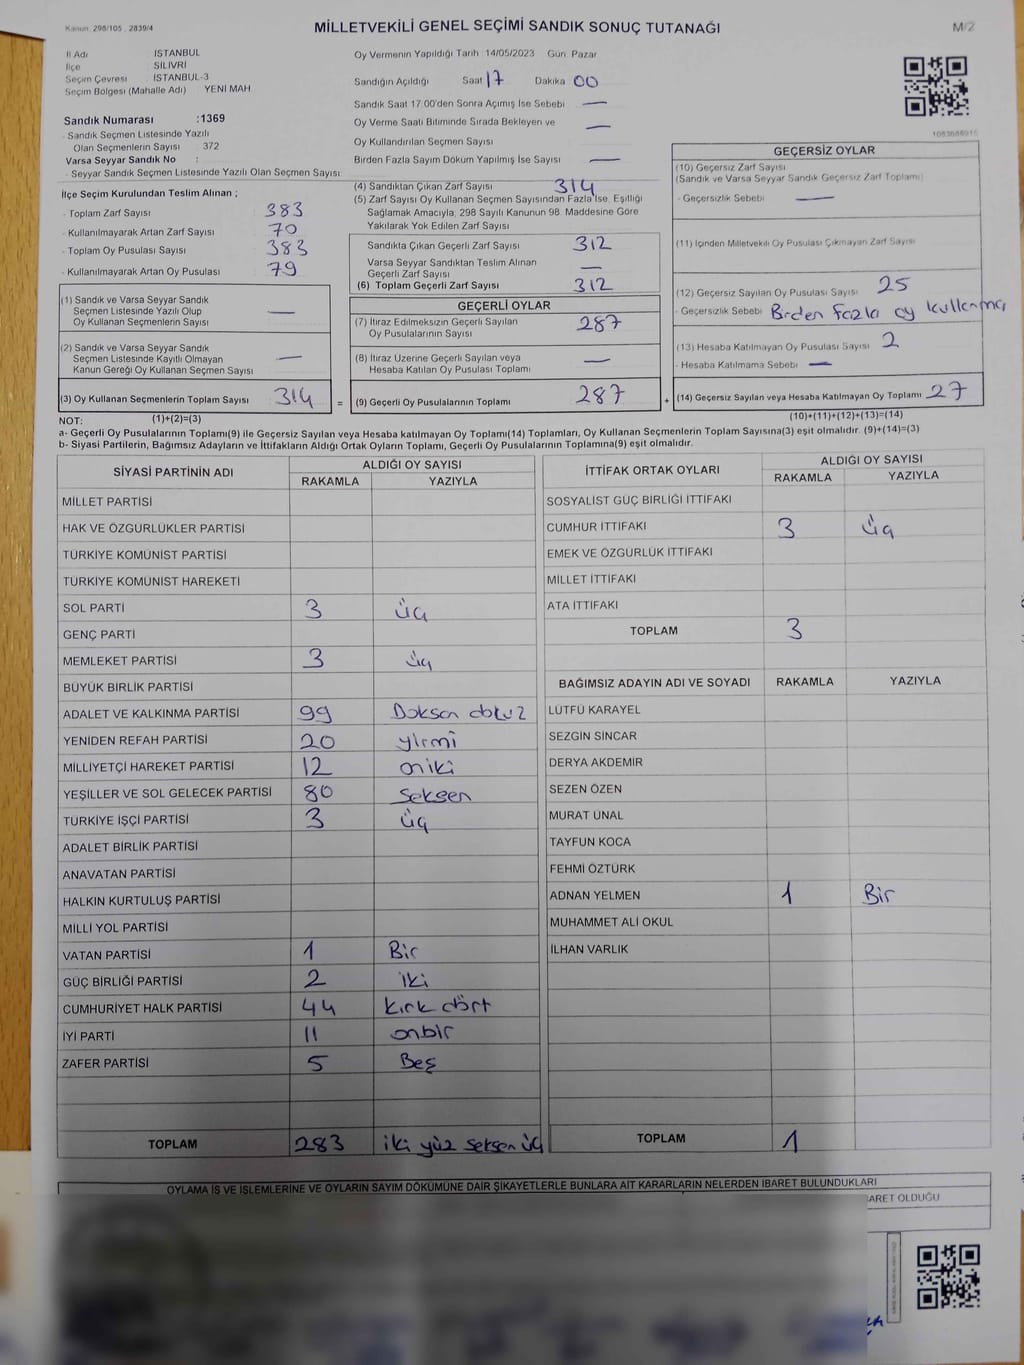 Kanun 298/105 2839/4
MİLLETVEKİLİ GENEL SEÇİMİ SANDIK SONUÇ TUTANAĞI
M/2
İl Adı İSTANBUL
İlçe SİLİVRİ
Seçim Çevresi İSTANBUL-3
Seçim Bölgesi (Mahalle Adı) YENİ MAH.
Oy Vermenin Yapıldığı Tarih 14/05/2023 Gün Pazar
Sandığın Açıldığı Saat 17 Dakika 00
Sandık Saat 17:00'den Sonra Açılmış İse Sebebi —
Oy Verme Saati Bitiminde Sırada Bekleyen ve
Oy Kullandırılan Seçmen Sayısı —
Birden Fazla Sayım Döküm Yapılmış İse Sayısı —
Sandık Numarası :1369
- Sandık Seçmen Listesinde Yazılı
Olan Seçmenlerin Sayısı 372
Varsa Seyyar Sandık No :
- Seyyar Sandık Seçmen Listesinde Yazılı Olan Seçmen Sayısı
İlçe Seçim Kurulundan Teslim Alınan ;
- Toplam Zarf Sayısı 383
- Kullanılmayarak Artan Zarf Sayısı 70
- Toplam Oy Pusulası Sayısı 383
- Kullanılmayarak Artan Oy Pusulası 79
(1) Sandık ve Varsa Seyyar Sandık
Seçmen Listesinde Yazılı Olup
Oy Kullanan Seçmenlerin Sayısı —
(2) Sandık ve Varsa Seyyar Sandık
Seçmen Listesinde Kayıtlı Olmayan
Kanun Gereği Oy Kullanan Seçmen Sayısı —
(3) Oy Kullanan Seçmenlerin Toplam Sayısı 314 =
(4) Sandıktan Çıkan Zarf Sayısı 314
(5) Zarf Sayısı Oy Kullanan Seçmen Sayısından Fazla İse, Eşitliği
Sağlamak Amacıyla, 298 Sayılı Kanunun 98. Maddesine Göre
Yakılarak Yok Edilen Zarf Sayısı
Sandıkta Çıkan Geçerli Zarf Sayısı 312
Varsa Seyyar Sandıktan Teslim Alınan
Geçerli Zarf Sayısı —
(6) Toplam Geçerli Zarf Sayısı 312
GEÇERLİ OYLAR
(7) İtiraz Edilmeksizin Geçerli Sayılan
Oy Pusulalarının Sayısı 287
(8) İtiraz Üzerine Geçerli Sayılan veya
Hesaba Katılan Oy Pusulası Toplamı —
(9) Geçerli Oy Pusulalarının Toplamı 287 +
GEÇERSİZ OYLAR
(10) Geçersiz Zarf Sayısı
(Sandık ve Varsa Seyyar Sandık Geçersiz Zarf Toplamı)
- Geçersizlik Sebebi —
(11) İçinden Milletvekili Oy Pusulası Çıkmayan Zarf Sayısı
(12) Geçersiz Sayılan Oy Pusulası Sayısı 25
- Geçersizlik Sebebi Birden Fazla oy kullanma
(13) Hesaba Katılmayan Oy Pusulası Sayısı 2
- Hesaba Katılmama Sebebi —
(14) Geçersiz Sayılan veya Hesaba Katılmayan Oy Toplamı 27
NOT: (1)+(2)=(3) (10)+(11)+(12)+(13)=(14)
a- Geçerli Oy Pusulalarının Toplamı(9) ile Geçersiz Sayılan veya Hesaba katılmayan Oy Toplamı(14) Toplamları, Oy Kullanan Seçmenlerin Toplam Sayısına(3) eşit olmalıdır. (9)+(14)=(3)
b- Siyasi Partilerin, Bağımsız Adayların ve İttifakların Aldığı Ortak Oyların Toplamı, Geçerli Oy Pusulalarının Toplamına(9) eşit olmalıdır.
SİYASİ PARTİNİN ADI ALDIĞI OY SAYISI
RAKAMLA YAZIYLA
MİLLET PARTİSİ
HAK VE ÖZGÜRLÜKLER PARTİSİ
TÜRKİYE KOMÜNİST PARTİSİ
TÜRKİYE KOMÜNİST HAREKETİ
SOL PARTİ 3 üç
GENÇ PARTİ
MEMLEKET PARTİSİ 3 üç
BÜYÜK BİRLİK PARTİSİ
ADALET VE KALKINMA PARTİSİ 99 Doksan dokuz
YENİDEN REFAH PARTİSİ 20 yirmi
MİLLİYETÇİ HAREKET PARTİSİ 12 oniki
YEŞİLLER VE SOL GELECEK PARTİSİ 80 seksen
TÜRKİYE İŞÇİ PARTİSİ 3 üç
ADALET BİRLİK PARTİSİ
ANAVATAN PARTİSİ
HALKIN KURTULUŞ PARTİSİ
MİLLİ YOL PARTİSİ
VATAN PARTİSİ 1 Bir
GÜÇ BİRLİĞİ PARTİSİ 2 iki
CUMHURİYET HALK PARTİSİ 44 kırk dört
İYİ PARTİ 11 onbir
ZAFER PARTİSİ 5 Beş
TOPLAM 283 iki yüz seksen üç
İTTİFAK ORTAK OYLARI ALDIĞI OY SAYISI
RAKAMLA YAZIYLA
SOSYALİST GÜÇ BİRLİĞİ İTTİFAKI
CUMHUR İTTİFAKI 3 üç
EMEK VE ÖZGÜRLÜK İTTİFAKI
MİLLET İTTİFAKI
ATA İTTİFAKI
TOPLAM 3
BAĞIMSIZ ADAYIN ADI VE SOYADI RAKAMLA YAZIYLA
LÜTFÜ KARAYEL
SEZGİN SİNCAR
DERYA AKDEMİR
SEZEN ÖZEN
MURAT ÜNAL
TAYFUN KOCA
FEHMİ ÖZTÜRK
ADNAN YELMEN 1 Bir
MUHAMMET ALİ OKUL
İLHAN VARLIK
TOPLAM 1
OYLAMA İŞ VE İŞLEMLERİNE VE OYLARIN SAYIM DÖKÜMÜNE DAİR ŞİKAYETLERLE BUNLARA AİT KARARLARIN NELERDEN İBARET BULUNDUKLARI
ARET OLDUĞU